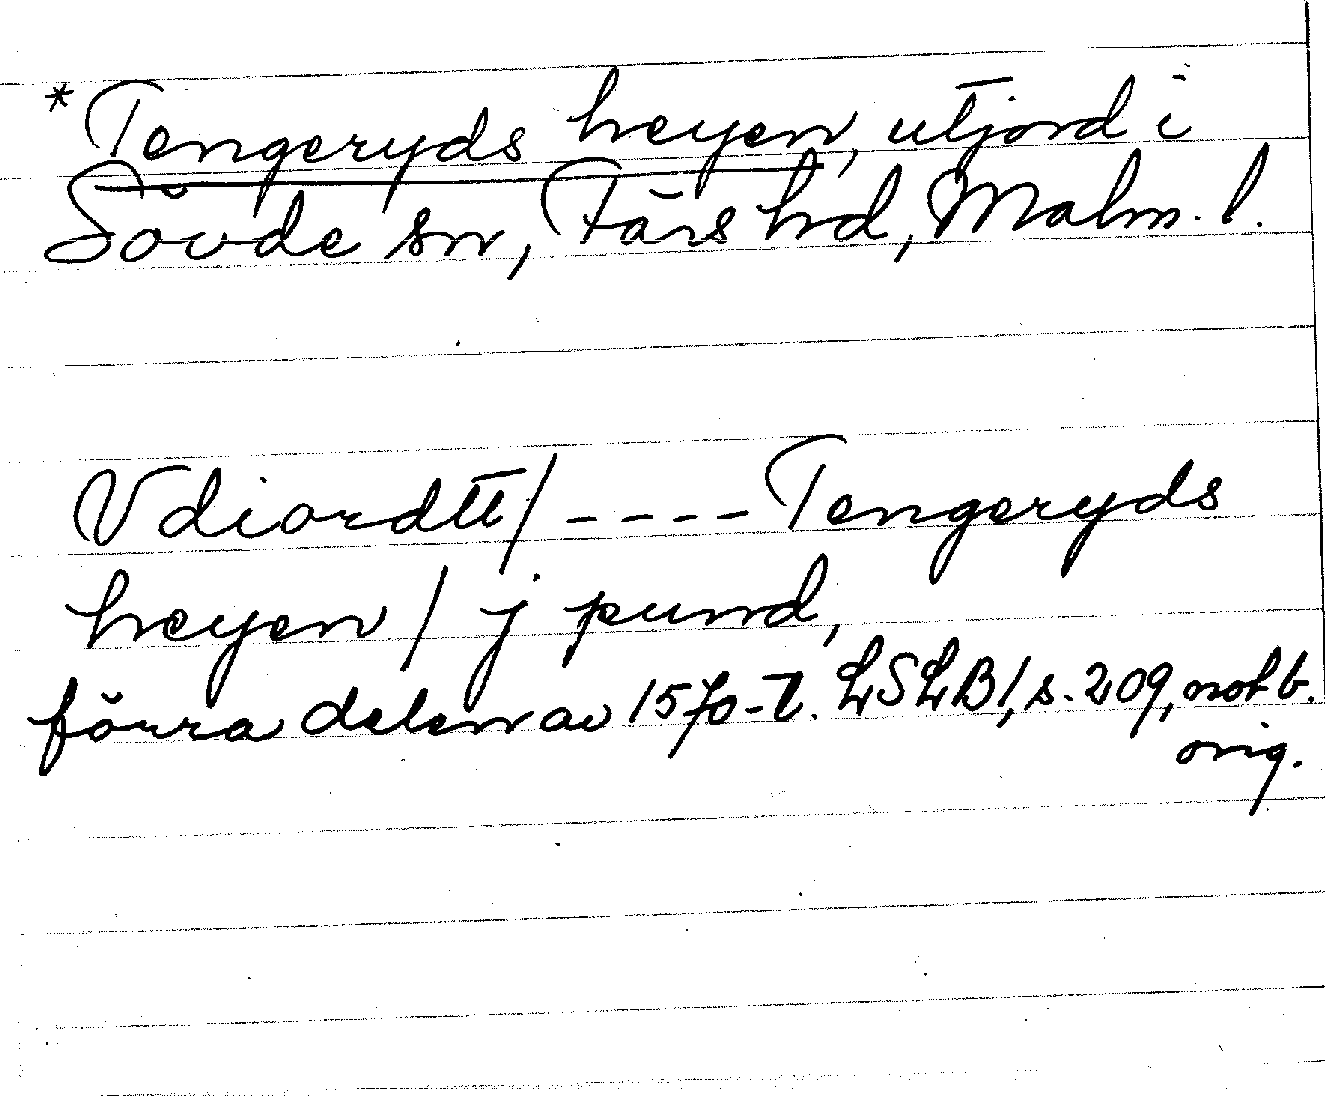 *Tengeryds heyen, utjord i
Sövde sn, Färs hd, Malm. l.
Vdiordtt/ ---- Tengeryds
heyen / j pund,
förra delen av 1570-t. LSLB1, s. 209, not b.
orig.